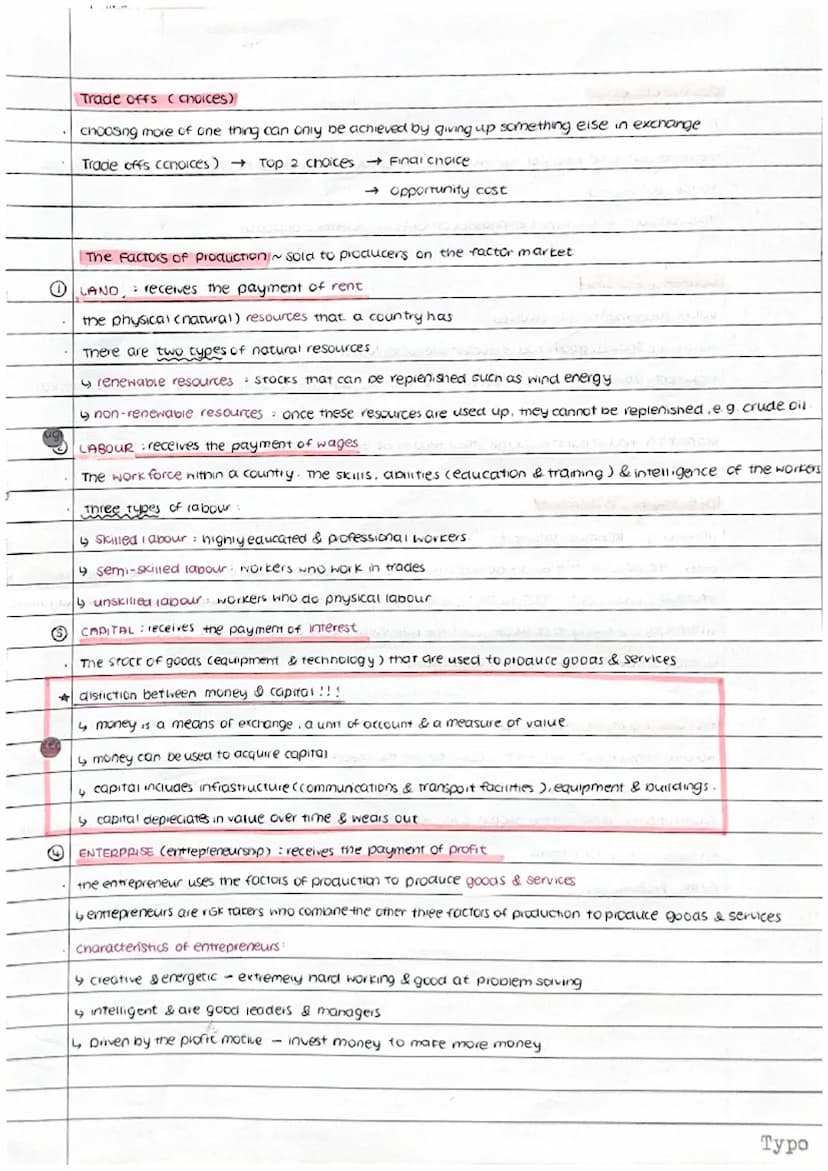 Trade offs (choices)
. choosing more of one thing can only be achieved by giving up something else in exchange
. Trade offs (choices) → Top 2 choices → Final choice
→ opportunity cost
The Factors of Production ~ sold to producers on the factor market
① LAND : receives the payment of rent
. the physical (natural) resources that a country has
. There are two types of natural resources
↳ renewable resources : stocks that can be replenished such as wind energy
↳ non-renewable resources : once these resources are used up, they cannot be replenished, e.g. crude oil
② LABOUR : receives the payment of wages
. The work force within a country. The skills, abilities (education & training) & intelligence of the workers
. Three types of labour :
↳ skilled labour : highly educated & professional workers
↳ semi-skilled labour : workers who work in trades
↳ unskilled labour : workers who do physical labour
③ CAPITAL : receives the payment of interest
. The stock of goods (equipment & technology) that are used to produce goods & services
★ distiction between money & capital !!!
↳ money is a means of exchange, a unit of account & a measure of value
↳ money can be used to acquire capital
↳ capital includes infrastructure (communications & transport facilities), equipment & buildings.
↳ capital depreciates in value over time & wears out
④ ENTERPRISE (entrepreneurship) : receives the payment of profit
. the entrepreneur uses the factors of production to produce goods & services
↳ entrepreneurs are risk takers who combine the other three factors of production to produce goods & services
. characteristics of entrepreneurs :
↳ creative & energetic – extremely hard working & good at problem solving
↳ intelligent & are good leaders & managers
↳ Driven by the profit motive – invest money to make more money
Typo